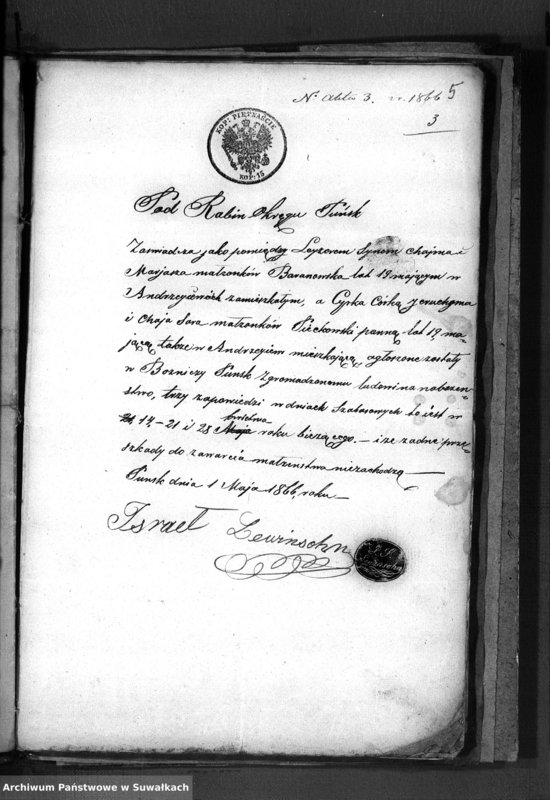 N. aktu 3. r. 1866 5
3
KOP: PIĘTNAŚCIE
KOP: 15
Pod Rabin Okręgu Puńsk
Zaświadcza jako pomiędzy Leyzerem Synem Chajma i
Marjasza małżonków Baranowska lat 19 mającym w
zamieszkałym, a Cyrka Córką Jeruchyma
i Chaja Sora małżonków panną, lat 19 ma-
jącą także w mieszkającą ogłoszone zostały
w Bożniczy Puńsk Zgromadzonemu ludowi na nabożen-
stwo, trzy zapowiedzi w dniach Szabasowych to iest w
kwietnia
14 – 21 i 28 Maja roku bieżącego. – i że żadne prze-
szkody do zawarcia małżenstwa niezachodzą —
Puńsk dnia 1 Maja 1866 roku —
Israel Lewinsohn
Archiwum Państwowe w Suwałkach